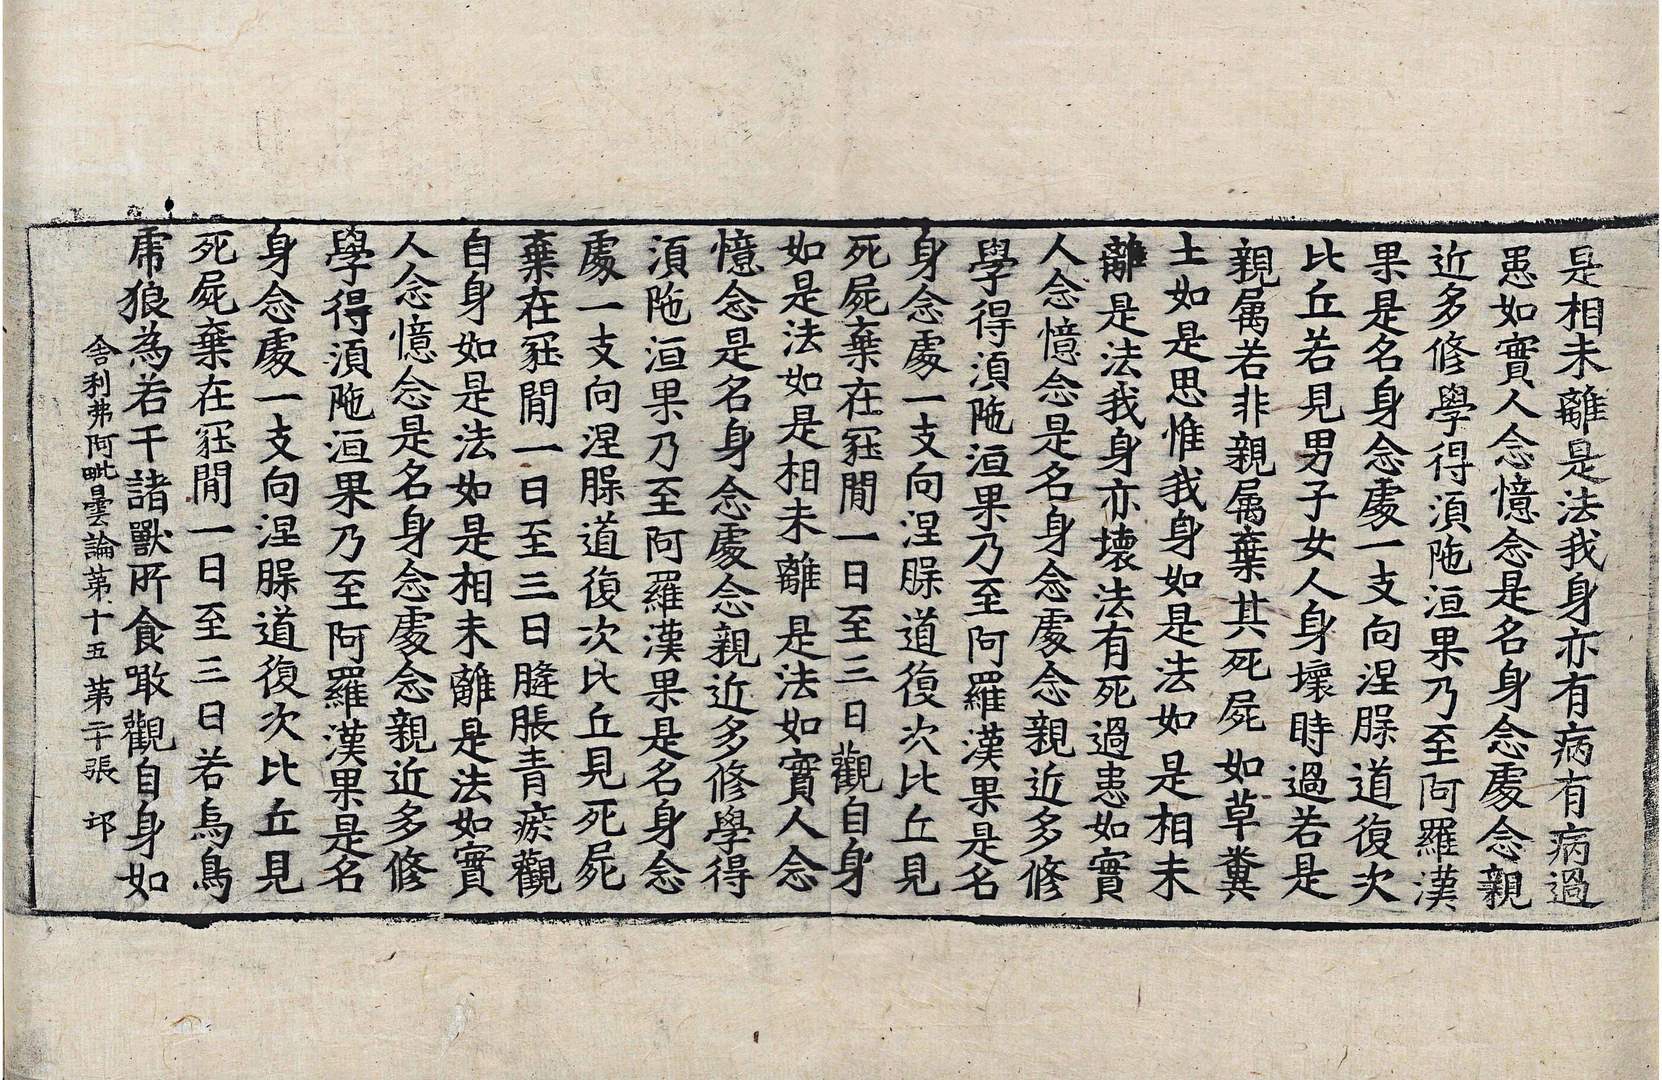 是相未離是法我身亦有病有病過
患如實人念憶念是名身念處念親
近多修學得湏陁洹果乃至阿羅漢
果是名身念處一支向涅槃道復次
比丘若見男子女人身壞時過若是
親属若非親属棄其死屍如草糞
土如是思惟我身如是法如是相未
離是法我身亦壞法有死過患如實
人念憶念是名身念處念親近多修
學得湏陁洹果乃至阿羅漢果是名
身念處一支向涅槃道復次比丘見
死屍棄在冢間一日至三日觀自身
如是法如是相未離是法如實人念
憶念是名身念處念親近多修學得
湏陁洹果乃至阿羅漢果是名身念
處一支向涅槃道復次比丘見死屍
棄在冢間一日至三日膖脹青瘀觀
自身如是法如是相未離是法如實
人念憶念是名身念處念親近多修
學得湏陁洹果乃至阿羅漢果是名
身念處一支向涅槃道復次比丘見
死屍棄在冢間一日至三日若烏鳥
虎狼為若干諸獸所食噉觀自身如
舍利弗阿毗曇論第十五 第二十張 邛